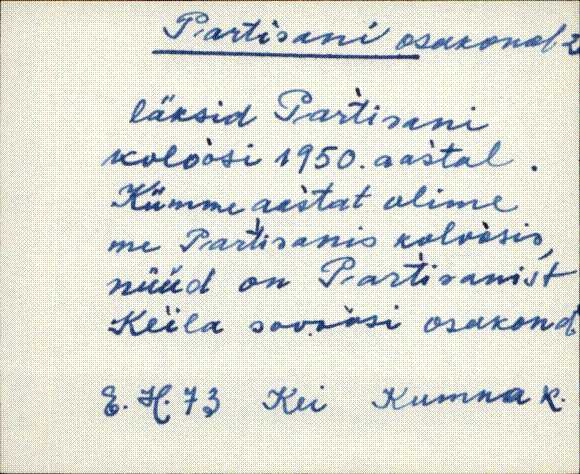 Partisani osakond 2
läksid Pàrtisani
kolòosi 1950. aàstal.
Kümme aàstat olime
me Pàrtisanis kolòosis,
nüüd on Pàrtisanist
Keila sovòosi osakond
E. H. 73 Kei Kumna k.